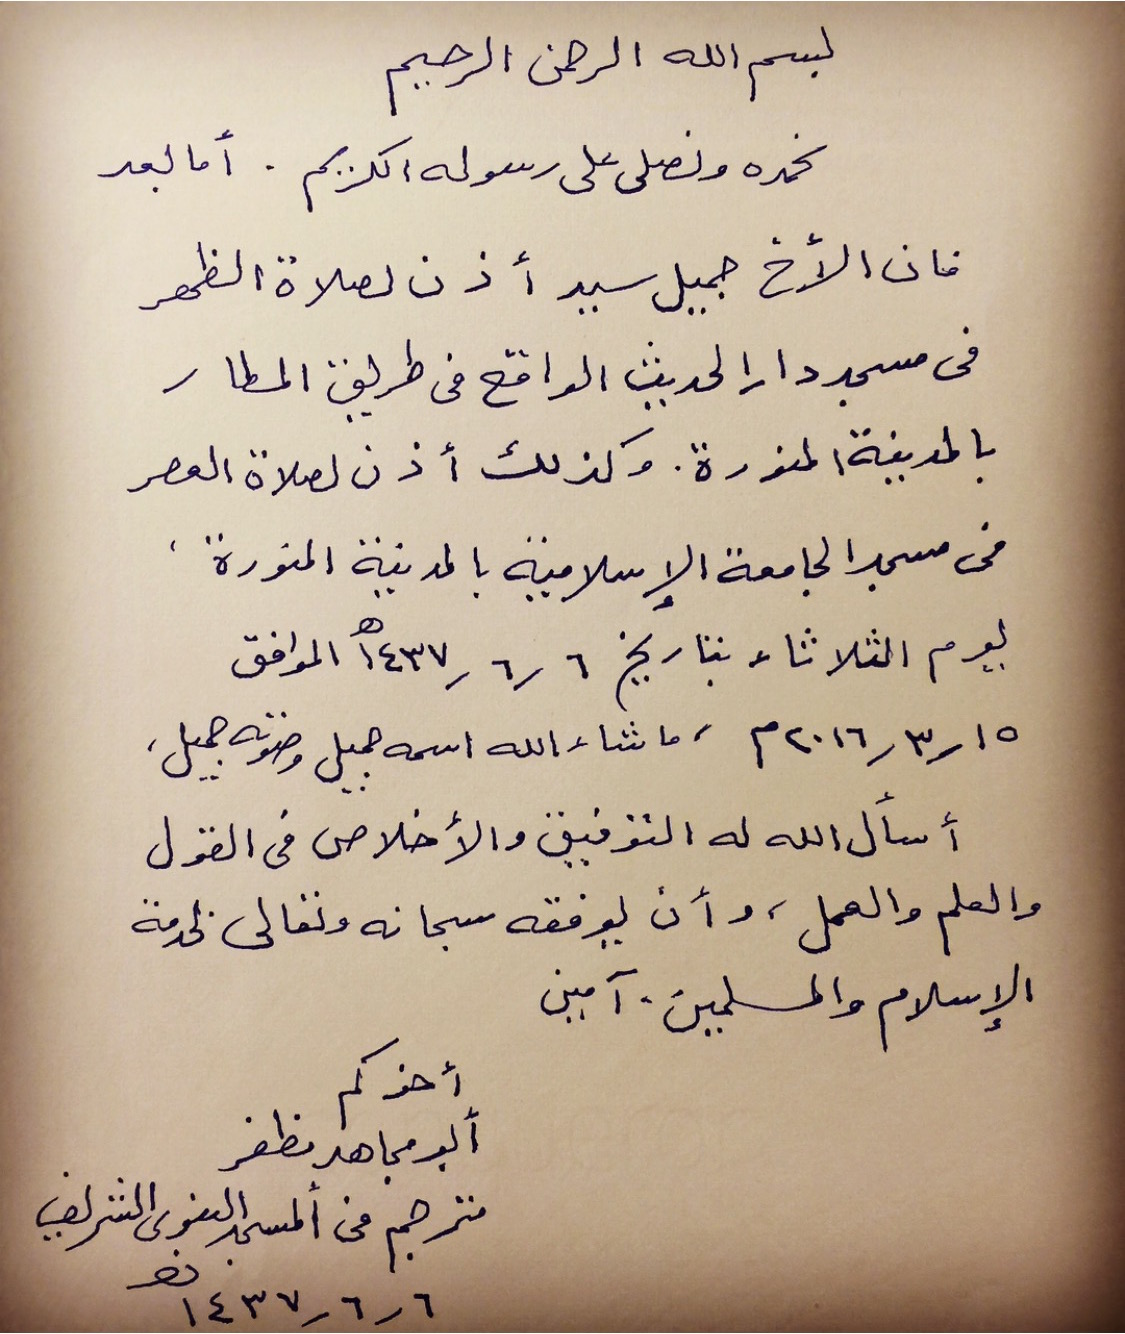 بسم الله الرحمن الرحيم
نحمده ونصلى على رسوله الكريم . أما بعد
فان الأخ جميل سيد أذن لصلاة الظهر
فى مسجد دار الحديث الواقع فى طريق المطار
بالمدينة المنورة . وكذلك أذن لصلاة العصر
فى مسجد الجامعة الإسلامية بالمدينة المنورة ،
يوم الثلاثاء بتاريخ ٦ ر ٦ ر ١٤٣٧ هـ الموافق
١٥ ر ٣ ر ٢٠١٦ م ، ماشاء الله اسمه جميل وصوته جميل ،
أسأل الله له التوفيق والأخلاص فى القول
والعلم والعمل ، وأن يوفقه سبحانه وتعالى لخدمة
الإسلام والمسلمين . آمين
أخوكم
أبو مجاهد مظفر
مترجم فى ألمسجد النبوى الشريف
٦ ر ٦ ر ١٤٣٧